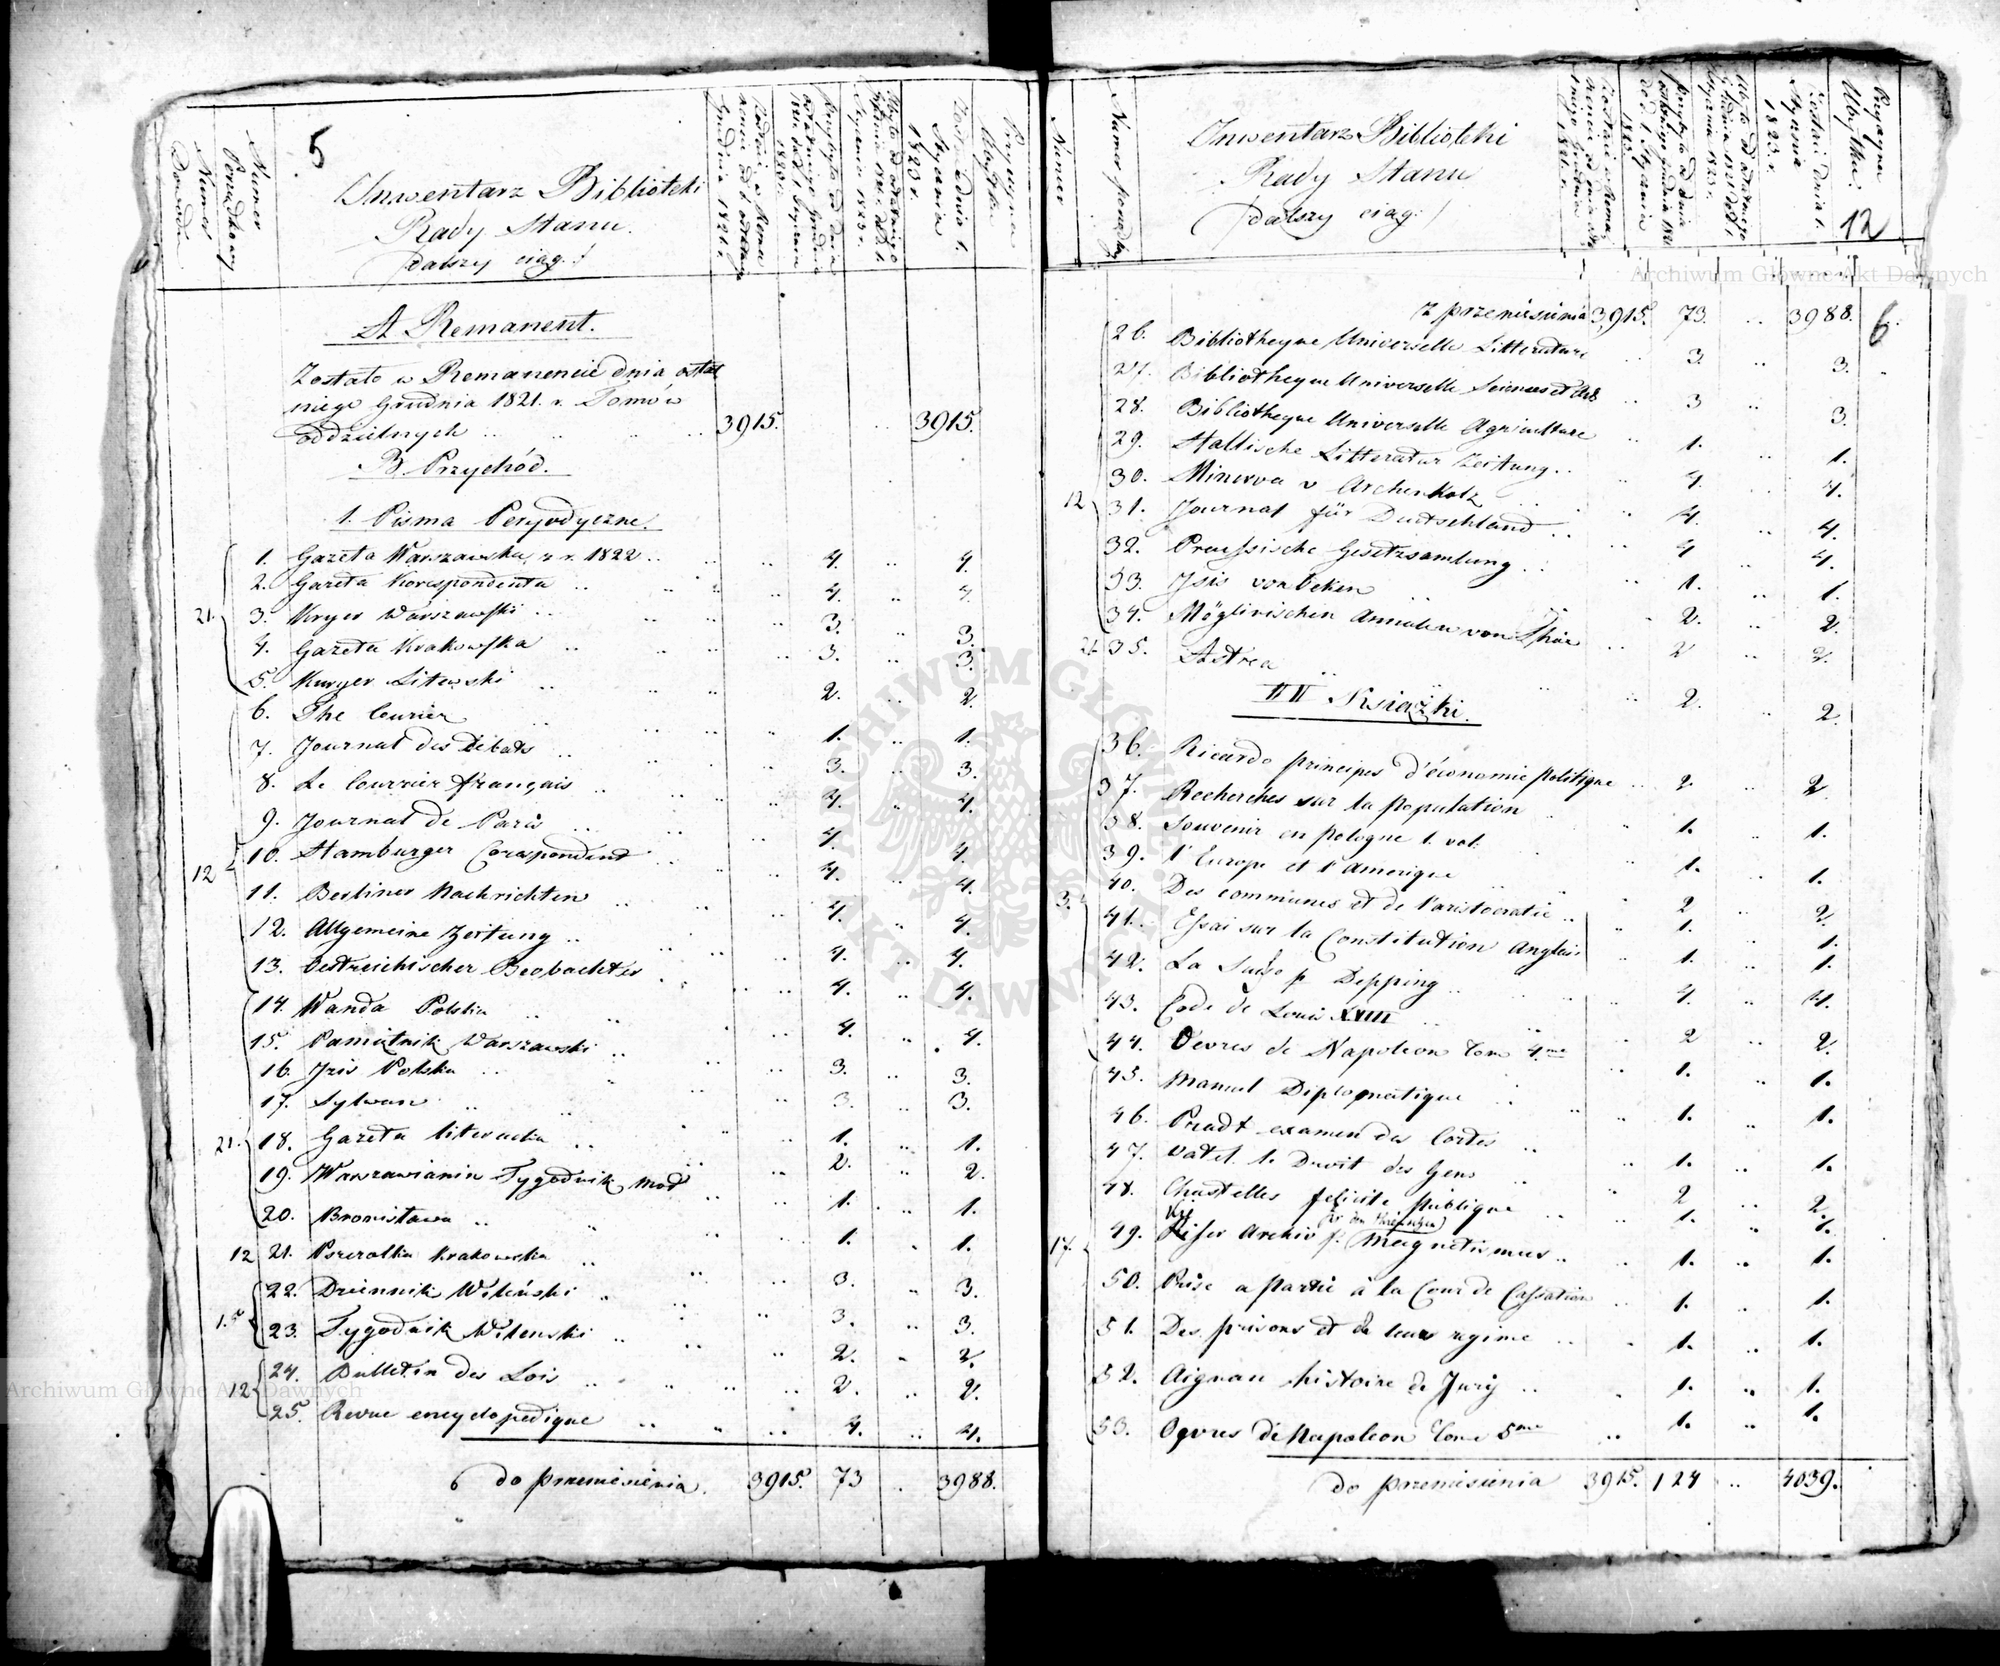 5
Numer Dowodu
Numer Porządkowy
Inwentarz Biblioteki
Rady Stanu.
/dalszy ciąg./
Przybyło od dnia ostatniego Grudnia 1821 do d. 1 Stycznia 1823 r.
Zostaje dnia 1. Stycznia 1823 r.
Przyczyna Ubytku
A Remanent.
Zostało w Remanencie dnia ostat
niego Grudnia 1821. r. Tomów
oddzielnych .. .. .. .. 3915. .. 3915.
B. Przychód.
1. Pisma Peryodyczne.
1. Gazeta Warszawska, z r. 1822 .. .. .. 4. .. 4.
2. Gazeta Korespondenta .. .. .. 4. .. 4.
21. 3. Kuryer Warszawski .. .. .. 3. .. 3.
4. Gazeta Krakowska .. .. .. 3. .. 3.
5. Kuryer Litewski .. .. .. 2. .. 2.
6. The Courier .. .. .. 1. .. 1.
7. Journal des Débats .. .. .. 3. .. 3.
8. Le Courrier français .. .. .. 4. .. 4.
9. Journal de Paris .. .. .. 4. .. 4.
12 10. Hamburger Corespondent .. .. .. 4. .. 4.
11. Berliner Nachrichten .. .. .. 4. .. 4.
12. Allgemeine Zeitung .. .. .. 4. .. 4.
13. Oestreichischer Beobachter .. .. .. 4. .. 4.
14. Wanda Polska .. .. .. 4. .. 4.
15. Pamiętnik Warszawski .. .. .. 3. .. 3.
16. Iris Polska .. .. .. 3. .. 3.
17. Sylwan .. .. .. 1. .. 1.
21. 18. Gazeta literacka .. .. .. 2. .. 2.
19. Warszawianin Tygodnik mod .. .. 1. .. 1.
20. Bronisława .. .. .. 1. .. 1.
12 21. Pszczółka Krakowska .. .. .. 3. .. 3.
22. Dziennik Wileński .. .. .. 3. .. 3.
15 23. Tygodnik Wilenski .. .. .. 2. .. 2.
12 24. Bulletin des Lois .. .. .. 2. .. 2.
25. Revue encyclopedique .. .. .. 4. .. 4.
do przeniesienia. 3915. 73 .. 3988.
Numer
Numer porządkowy
Inwentarz Biblioteki
Rady Stanu
/dalszy ciąg./
Zostaje dnia 1. Stycznia 1823. r.
Przyczyna Ubytku.
12
z przeniesienia 3915. 73. .. 3988.
6
26. Bibliotheque Universelle Litterature .. 3. .. 3.
27. Bibliotheque Universelle Sciences et Arts .. 3 .. 3.
28. Bibliotheque Universelle Agriculture .. 1. .. 1.
29. Hallische Litteratur Zeitung .. .. 4. .. 4.
30. Minerva v Archenholz .. .. 4. .. 4.
12 31. Journal für Deutschland .. .. 4 .. 4.
32. Preussische Gesetzsamlung .. .. 1. .. 1.
33. Isis von Oeken .. .. 2. .. 2.
34. Möglinischen Annalen von Thär .. 2 .. 2.
21 35. Astrea .. .. 2. .. 2.
II Książki.
36. Ricardo principes d'économie politique .. 2. .. 2.
37. Recherches sur la population .. 1. .. 1.
38. Souvenir en pologne 1. vol. .. 1. .. 1.
39. l'Europe et l'Amerique .. .. 2 .. 2.
3. 40. Des communes et de l'aristocratie .. .. 1. .. 1.
41. Essai sur la Constitution Anglais .. 1. .. 1.
42. La Suisse p Depping .. .. 4. .. 4.
43. Code de Louis XVIII .. .. 2 .. 2.
44. Oevres de Napoleon Tom 4me .. 1. .. 1.
45. Manuel Diplomatique .. .. 1. .. 1.
46. Pradt examen des Cortes .. .. 1. .. 1.
47. Vatel. le Droit des Gens .. .. 2 .. 2.
48. Chastelles felicité publique .. .. 1. .. 1.
17. 49. Archiv f. Magnetismus .. 1. .. 1.
50. Prise a partie à la Cour de Cassation .. 1. .. 1.
51. Des prisons et de leur regime .. .. 1. .. 1.
52. Aignan histoire de Jury .. .. 1. .. 1.
53. Oevres de Napoleon Tome 5me .. 1. .. 1.
do przeniesienia 3915. 124 .. 4039.
Archiwum Główne Akt Dawnych
Archiwum Główne Akt Dawnych
ARCHIWUM GŁÓWNE AKT DAWNYCH